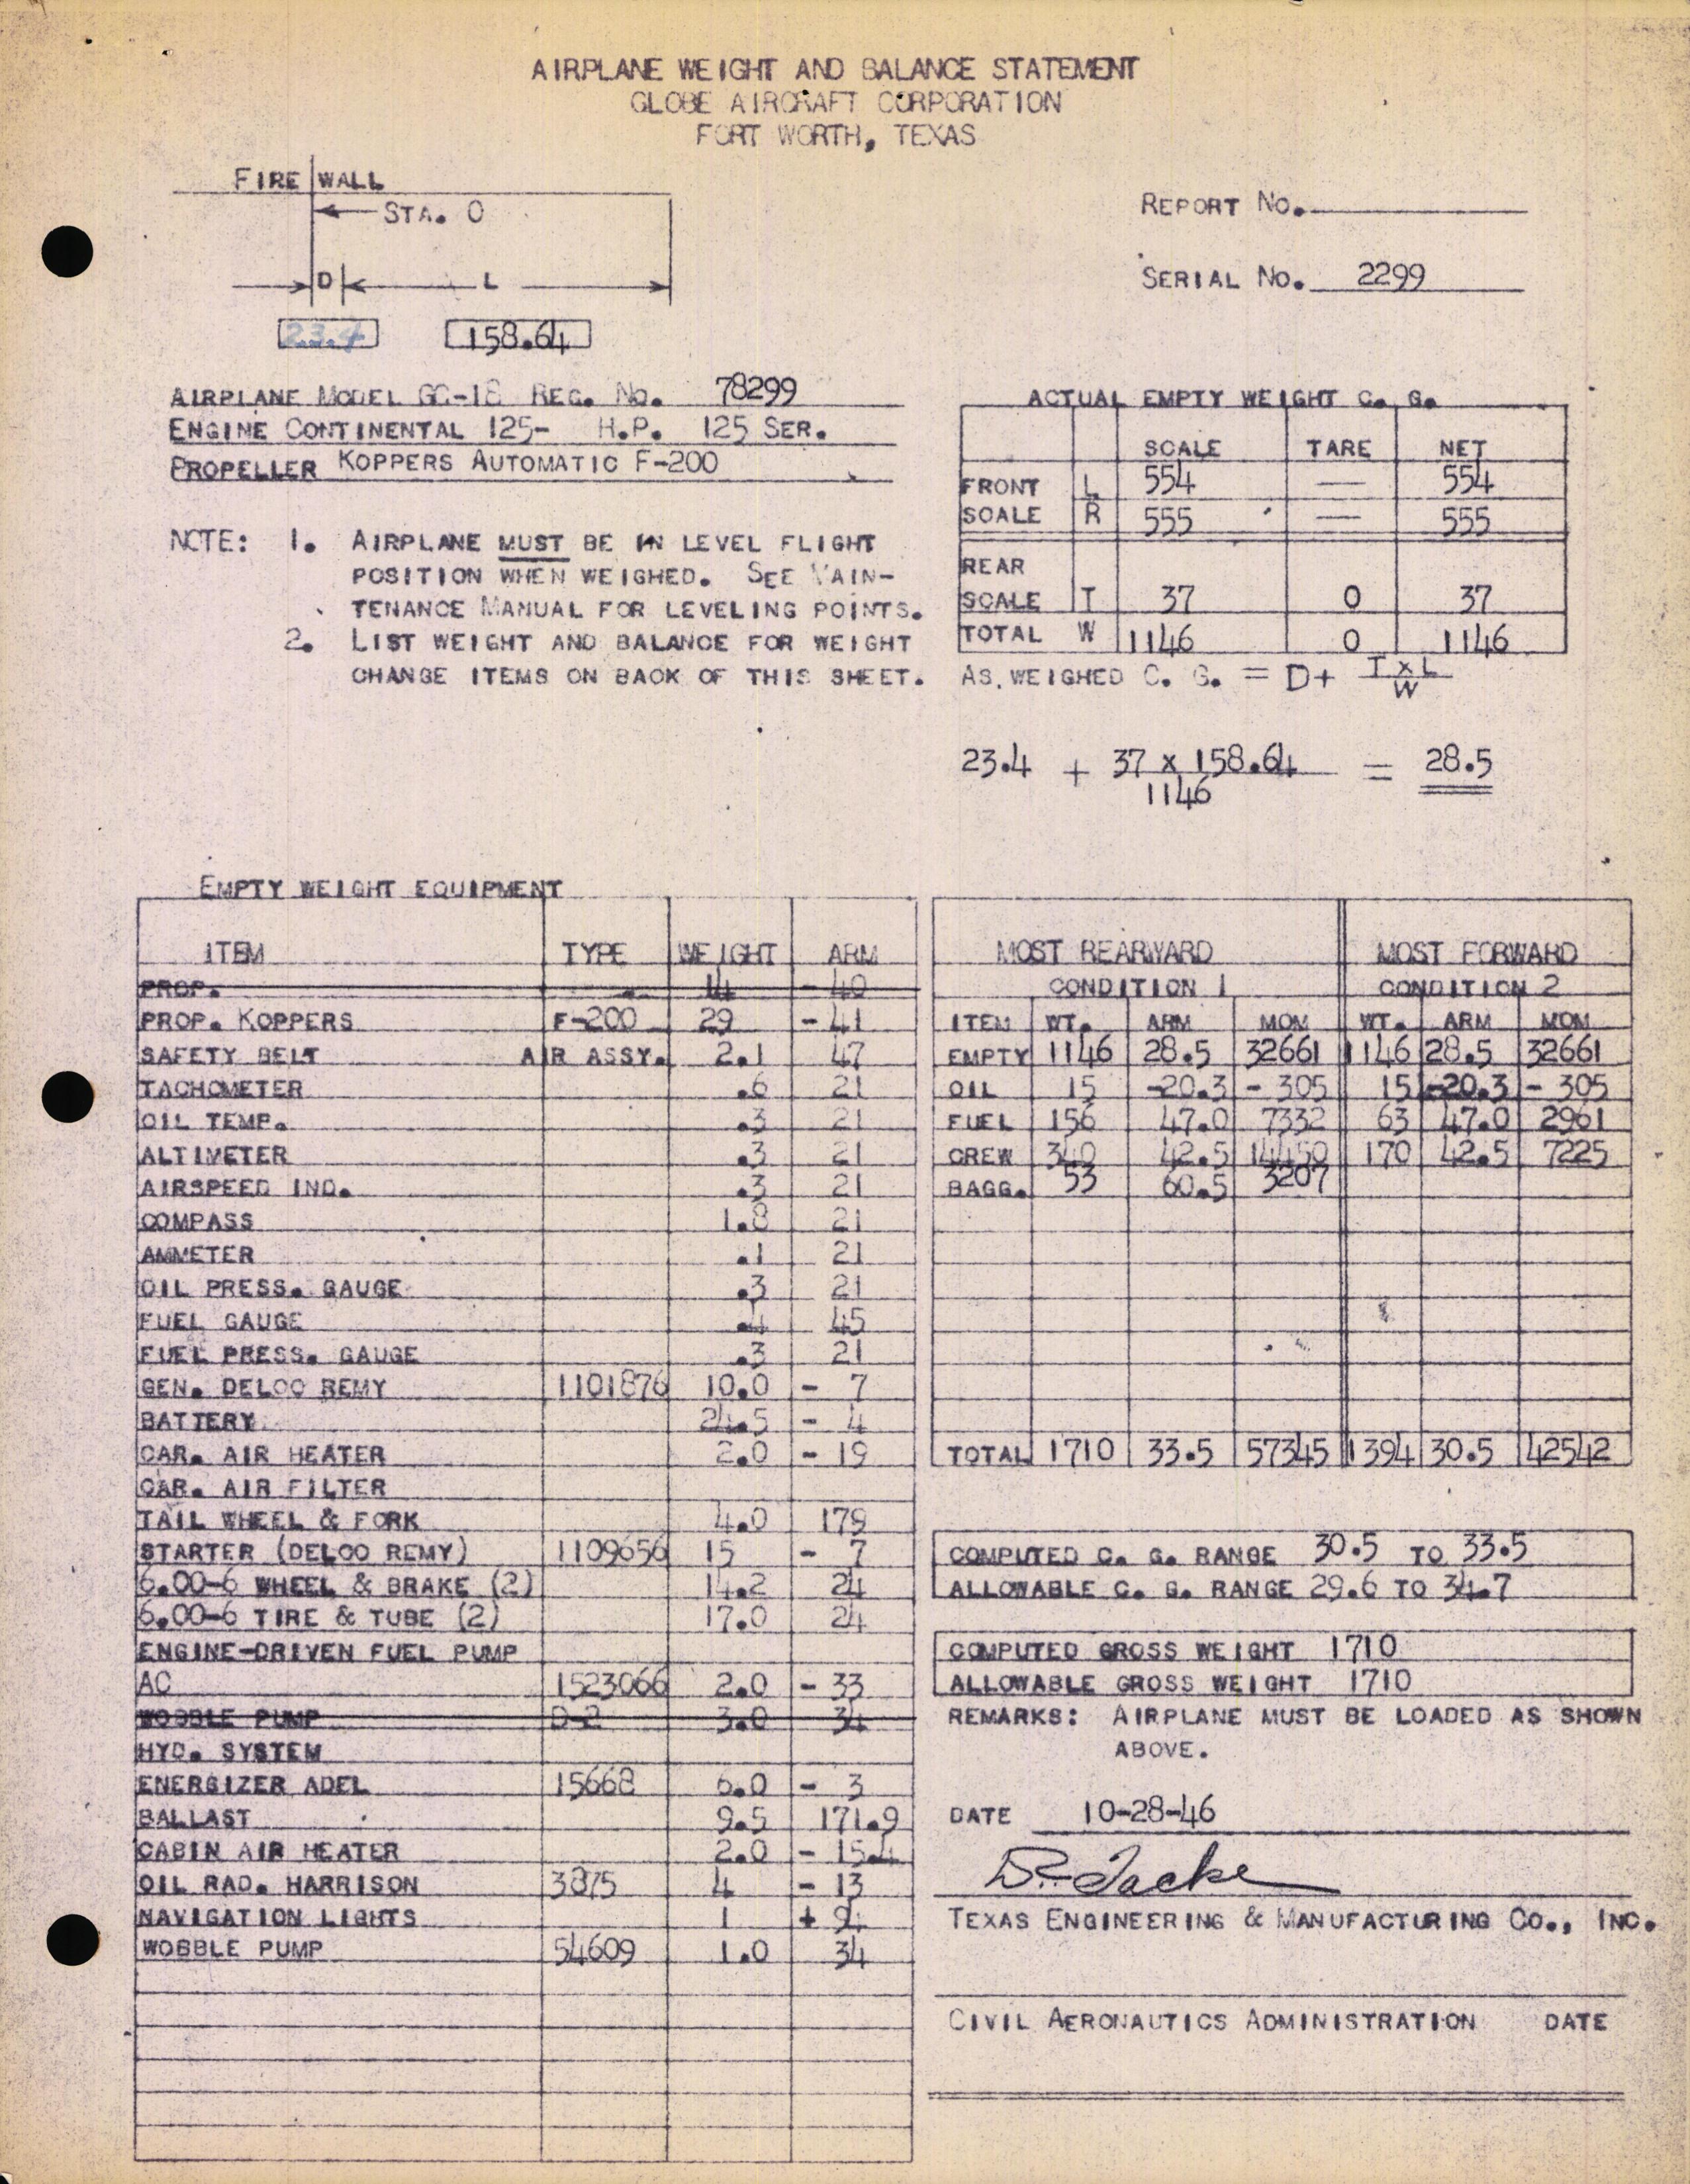 AIRPLANE WEIGHT AND BALANCE STATEMENT
GLOBE AIRCRAFT CORPORATION
FORT WORTH, TEXAS
FIRE WALL
STA. 0
D L
23.4 158.64
REPORT No.
SERIAL No. 2299
AIRPLANE MODEL GC-1B REG. No. 78299
ENGINE CONTINENTAL 125- H.P. 125 SER.
PROPELLER KOPPERS AUTOMATIC F-200
NOTE: 1. AIRPLANE MUST BE IN LEVEL FLIGHT
POSITION WHEN WEIGHED. SEE MAIN-
TENANCE MANUAL FOR LEVELING POINTS.
2. LIST WEIGHT AND BALANCE FOR WEIGHT
CHANGE ITEMS ON BACK OF THIS SHEET.
ACTUAL EMPTY WEIGHT C. G.
SCALE TARE NET
FRONT L 554 — 554
SCALE R 555 — 555
REAR
SCALE T 37 0 37
TOTAL W 1146 0 1146
AS WEIGHED C. G. = D+ T x L
W
23.4 + 37 x 158.64 = 28.5
1146
EMPTY WEIGHT EQUIPMENT
ITEM TYPE WEIGHT ARM
PROP. 14 - 40
PROP. KOPPERS F-200 29 - 41
SAFETY BELT AIR ASSY. 2.1 47
TACHOMETER .6 21
OIL TEMP. .3 21
ALTIMETER .3 21
AIRSPEED IND. .3 21
COMPASS 1.8 21
AMMETER .1 21
OIL PRESS. GAUGE .3 21
FUEL GAUGE .4 45
FUEL PRESS. GAUGE .3 21
GEN. DELCO REMY 1101876 10.0 - 7
BATTERY 24.5 - 4
CAR. AIR HEATER 2.0 - 19
CAR. AIR FILTER
TAIL WHEEL & FORK 4.0 179
STARTER (DELCO REMY) 1109656 15 - 7
6.00-6 WHEEL & BRAKE (2) 14.2 24
6.00-6 TIRE & TUBE (2) 17.0 24
ENGINE-DRIVEN FUEL PUMP
AC 1523066 2.0 - 33
WOBBLE PUMP D-2 3.0 34
HYD. SYSTEM
ENERGIZER ADEL 15668 6.0 - 3
BALLAST 9.5 171.9
CABIN AIR HEATER 2.0 - 15.4
OIL RAD. HARRISON 3875 4 - 13
NAVIGATION LIGHTS 1 +
WOBBLE PUMP 54609 1.0 34
MOST REARWARD MOST FORWARD
CONDITION 1 CONDITION 2
ITEM WT. ARM MOM WT. ARM MOM
EMPTY 1146 28.5 32661 1146 28.5 32661
OIL 15 -20.3 - 305 15 -20.3 - 305
FUEL 156 47.0 7332 63 47.0 2961
CREW 340 42.5 14450 170 42.5 7225
BAGG. 53 60.5 3207
TOTAL 1710 33.5 57345 1394 30.5 42542
COMPUTED C. G. RANGE 30.5 TO 33.5
ALLOWABLE C. G. RANGE 29.6 TO 34.7
COMPUTED GROSS WEIGHT 1710
ALLOWABLE GROSS WEIGHT 1710
REMARKS: AIRPLANE MUST BE LOADED AS SHOWN
ABOVE.
DATE 10-28-46
TEXAS ENGINEERING & MANUFACTURING CO., INC.
CIVIL AERONAUTICS ADMINISTRATION DATE